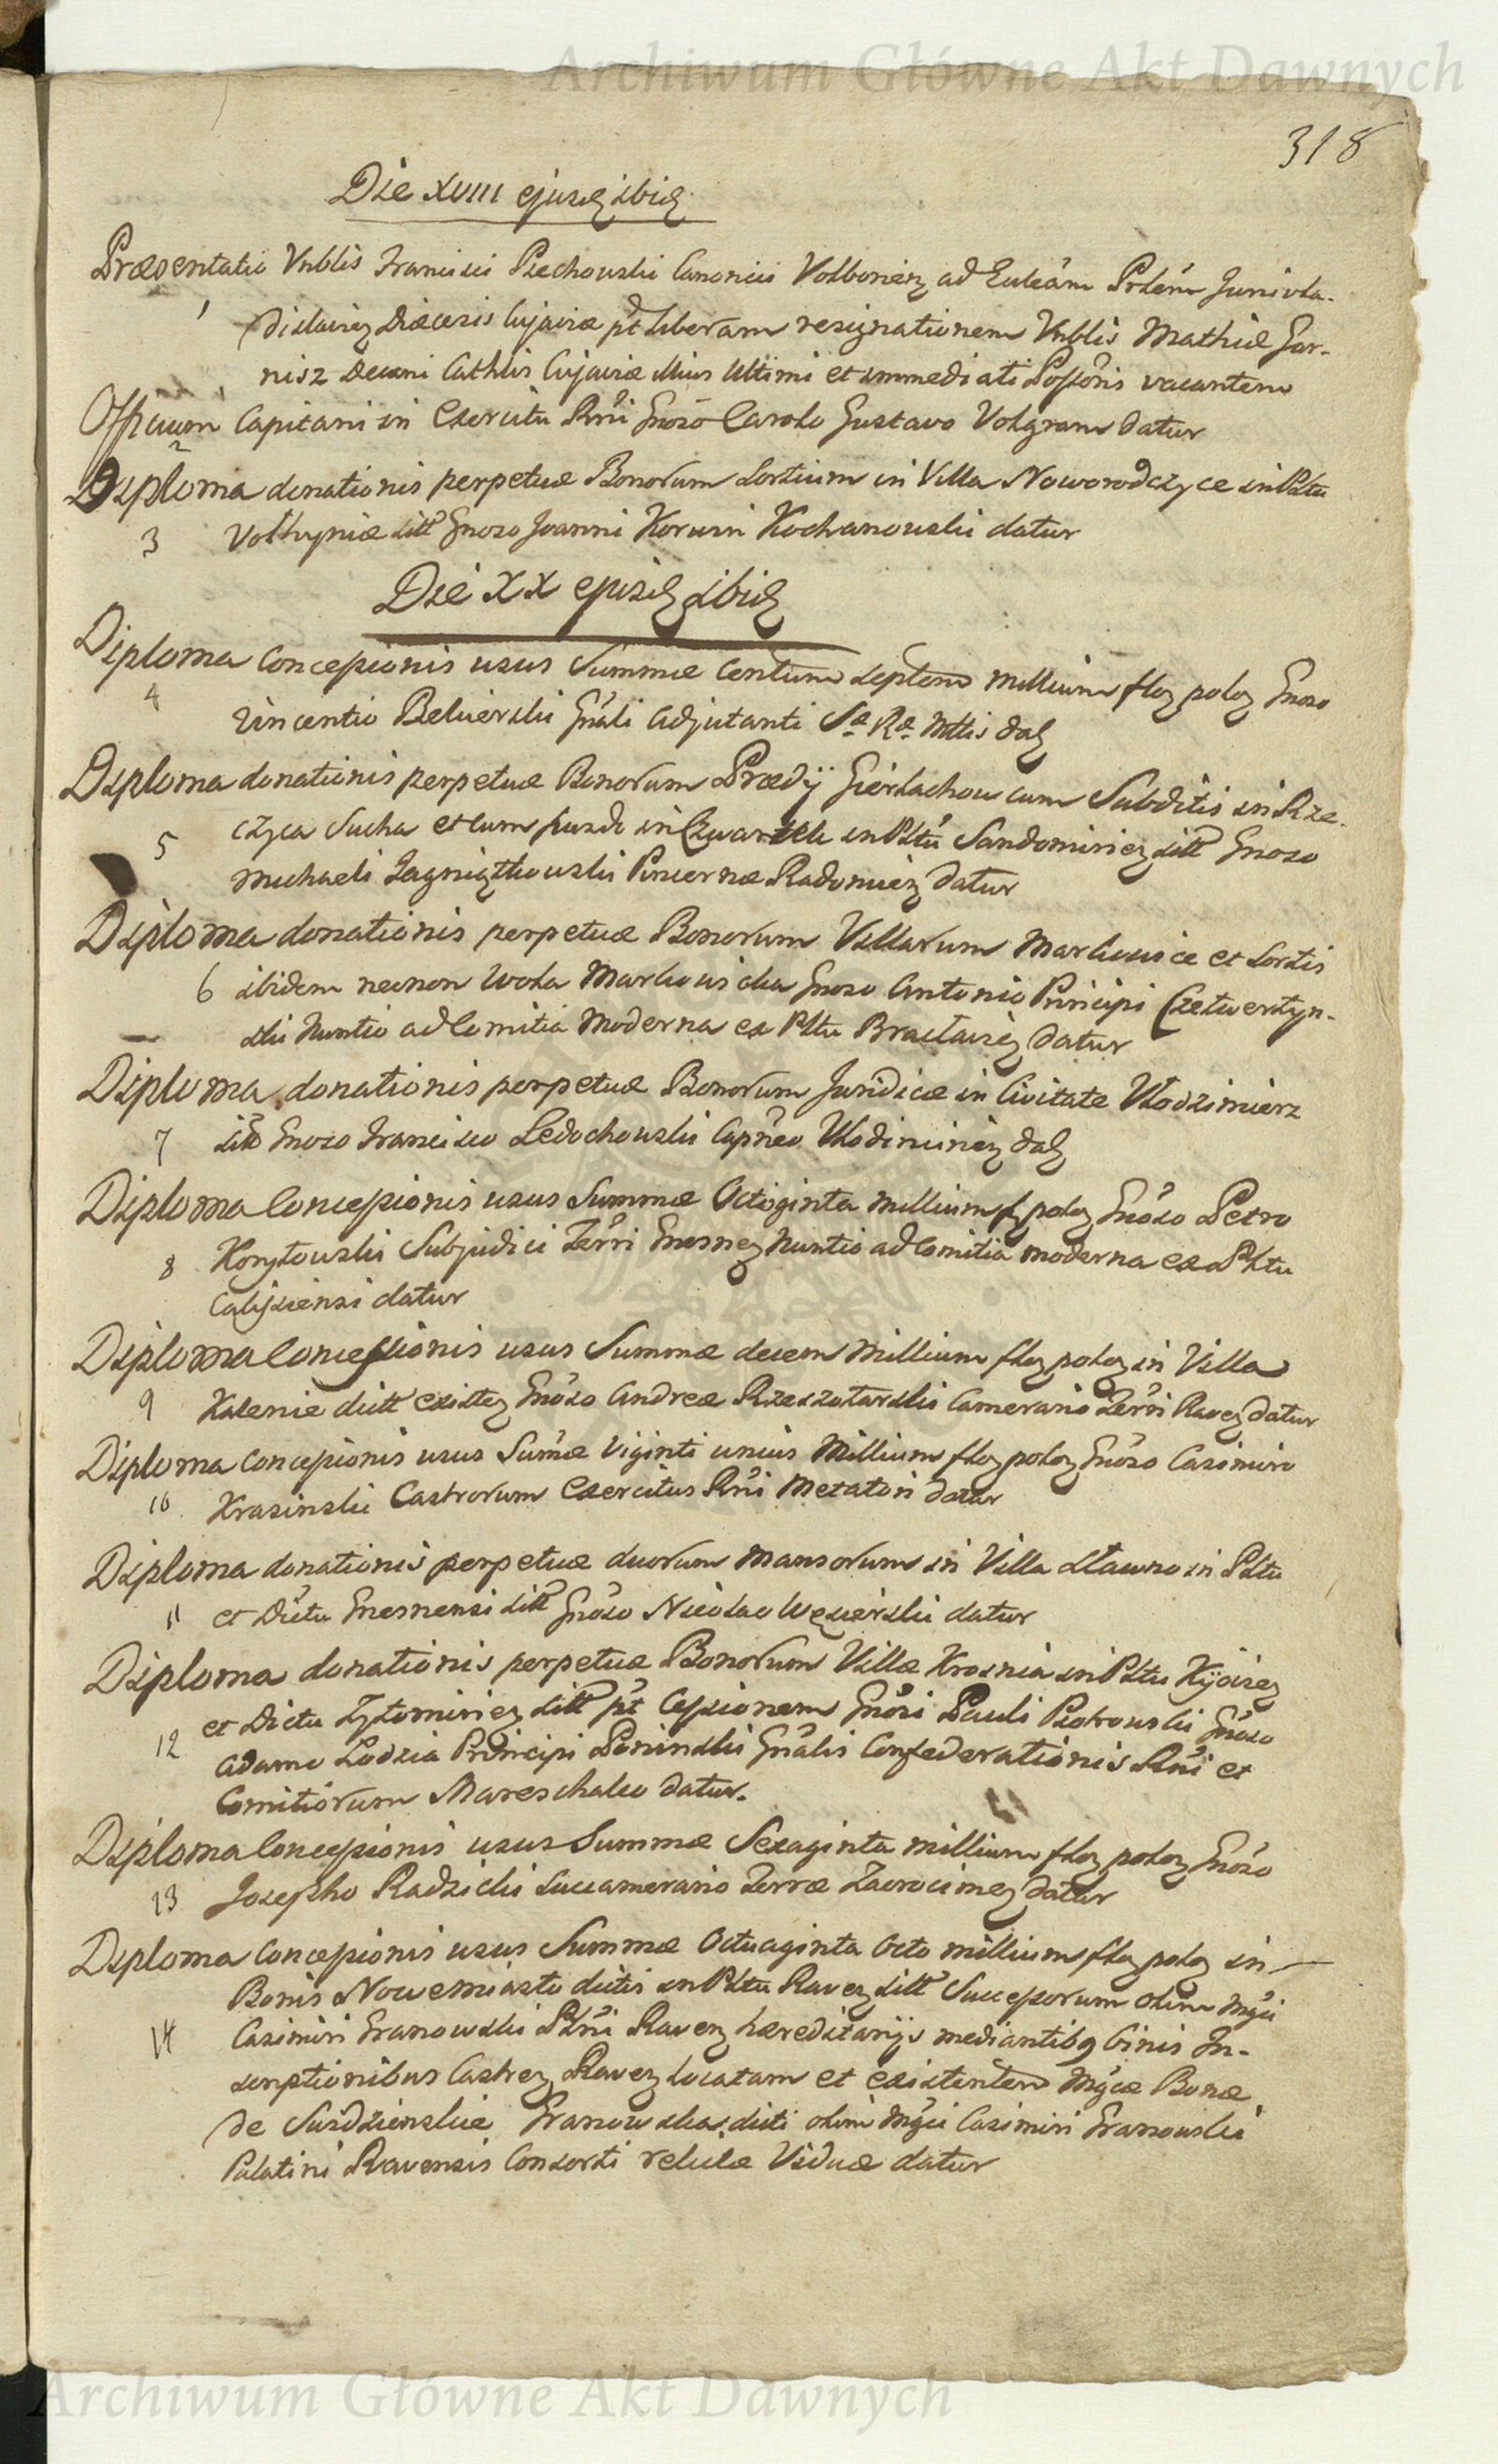 Archiwum Główne Akt Dawnych
318
Die XVIII ejusd ibid
Præsentatio Vnblis Francisci Piechowski Canonici Volborien ad Eccleām Prlém Junivla-
1
dislavien Diœcesis Cujaviæ pt liberam resignationem Vnblis Mathiæ Gar-
nisz Decani Cathlis Cujaviæ illius Ultimi et immediati Possōris vacantem
Officium Capitani in Exercitu Rni Gnoso Carolo Gustavo Volgram datur
2
Diploma donationis perpetuæ Bonorum Sortium in Villa Noworodczyce in Pltu
3 Volhyniæ sitt Gnoso Joanni Korwin Kochanowski datur
Die XX ejusd ibid
Diploma Concessionis usus Summæ Centum septem millium flor polor Gnoso
4
Vincentio Bekierski Gnāli Adjutanti Sæ Ræ Mttis dat
Diploma donationis perpetuæ Bonorum Prædij Gierlachow cum Subditis in Rze-
5 czyca Sucha et cum fundo in Czwartek in Pltu Sandomirien sitt Gnoso
Michaeli Jagniątkowski Pincernæ Radomien datur
Diploma donationis perpetuæ Bonorum Villarum Markowice et Sortis
6 ibidem necnon Wola Markowicka Gnoso Antonio Principi Czetwertyn-
ski Nuntio ad Comitia Moderna ex Pltu Bracłavien datur
Diploma donationis perpetuæ Bonorum Juridicæ in Civitate Włodzimierz
7 sitt Gnoso Francisco Ledochowski Capneo Wlodimirien dat
Diploma Concessionis usus Summæ Octoginta millium f polor Gnōso Petro
8 Korytowski Subjudici Terri Gnesnen Nuntio ad Comitia moderna ex Pltu
Calisiensi datur
Diploma Concessionis usus Summæ decem Millium flor polor in Villa
9 Kalenie dict existen Gnōso Andreæ Rzeszotarski Camerario Terri Raven datur
Diploma Concessionis usus Sumæ Viginti unius Millium flor polor Gnōso Casimiro
10 Krasinski Castrorum Exercitus Rni Metatori datur
Diploma donationis perpetuæ duorum Mansorum in Villa Sławno in Pltu
11 et Dictu Gnesnensi sitt Gnōso Nicolao Węsierski datur
Diploma donationis perpetuæ Bonorum Villæ Krosnia in Pltu Kijovien
et Dictu Zytomirien sitt pt Cessionem Gnōsi Pauli Piotrowski Gnōso
12 Adamo Lodzia Principi Poninski Gnālis Confederationis Rni et
Comitiorum Mareschalco datur.
Diploma Concessionis usus Summæ Sexaginta millium flor polor Gnōso
13 Josepho Radzicki Succamerario Terræ Zacrocimen datur
Diploma Concessionis usus Summæ Octuaginta Octo millium flor polor in
Bonis Nowemiasto dictis in Pltu Raven sitt Successorum olim Mgci
14 Casimiri Granowski Pltni Raven hæreditarijs mediantibq binis In-
scriptionibus Castren Raven locatam et existentem Mgcæ Bonæ
de Świdzinskie Granowska dicti olim Mgci Casimiri Granowski
Palatini Ravensis Consorti relictæ Viduæ datur
Archiwum Główne Akt Dawnych